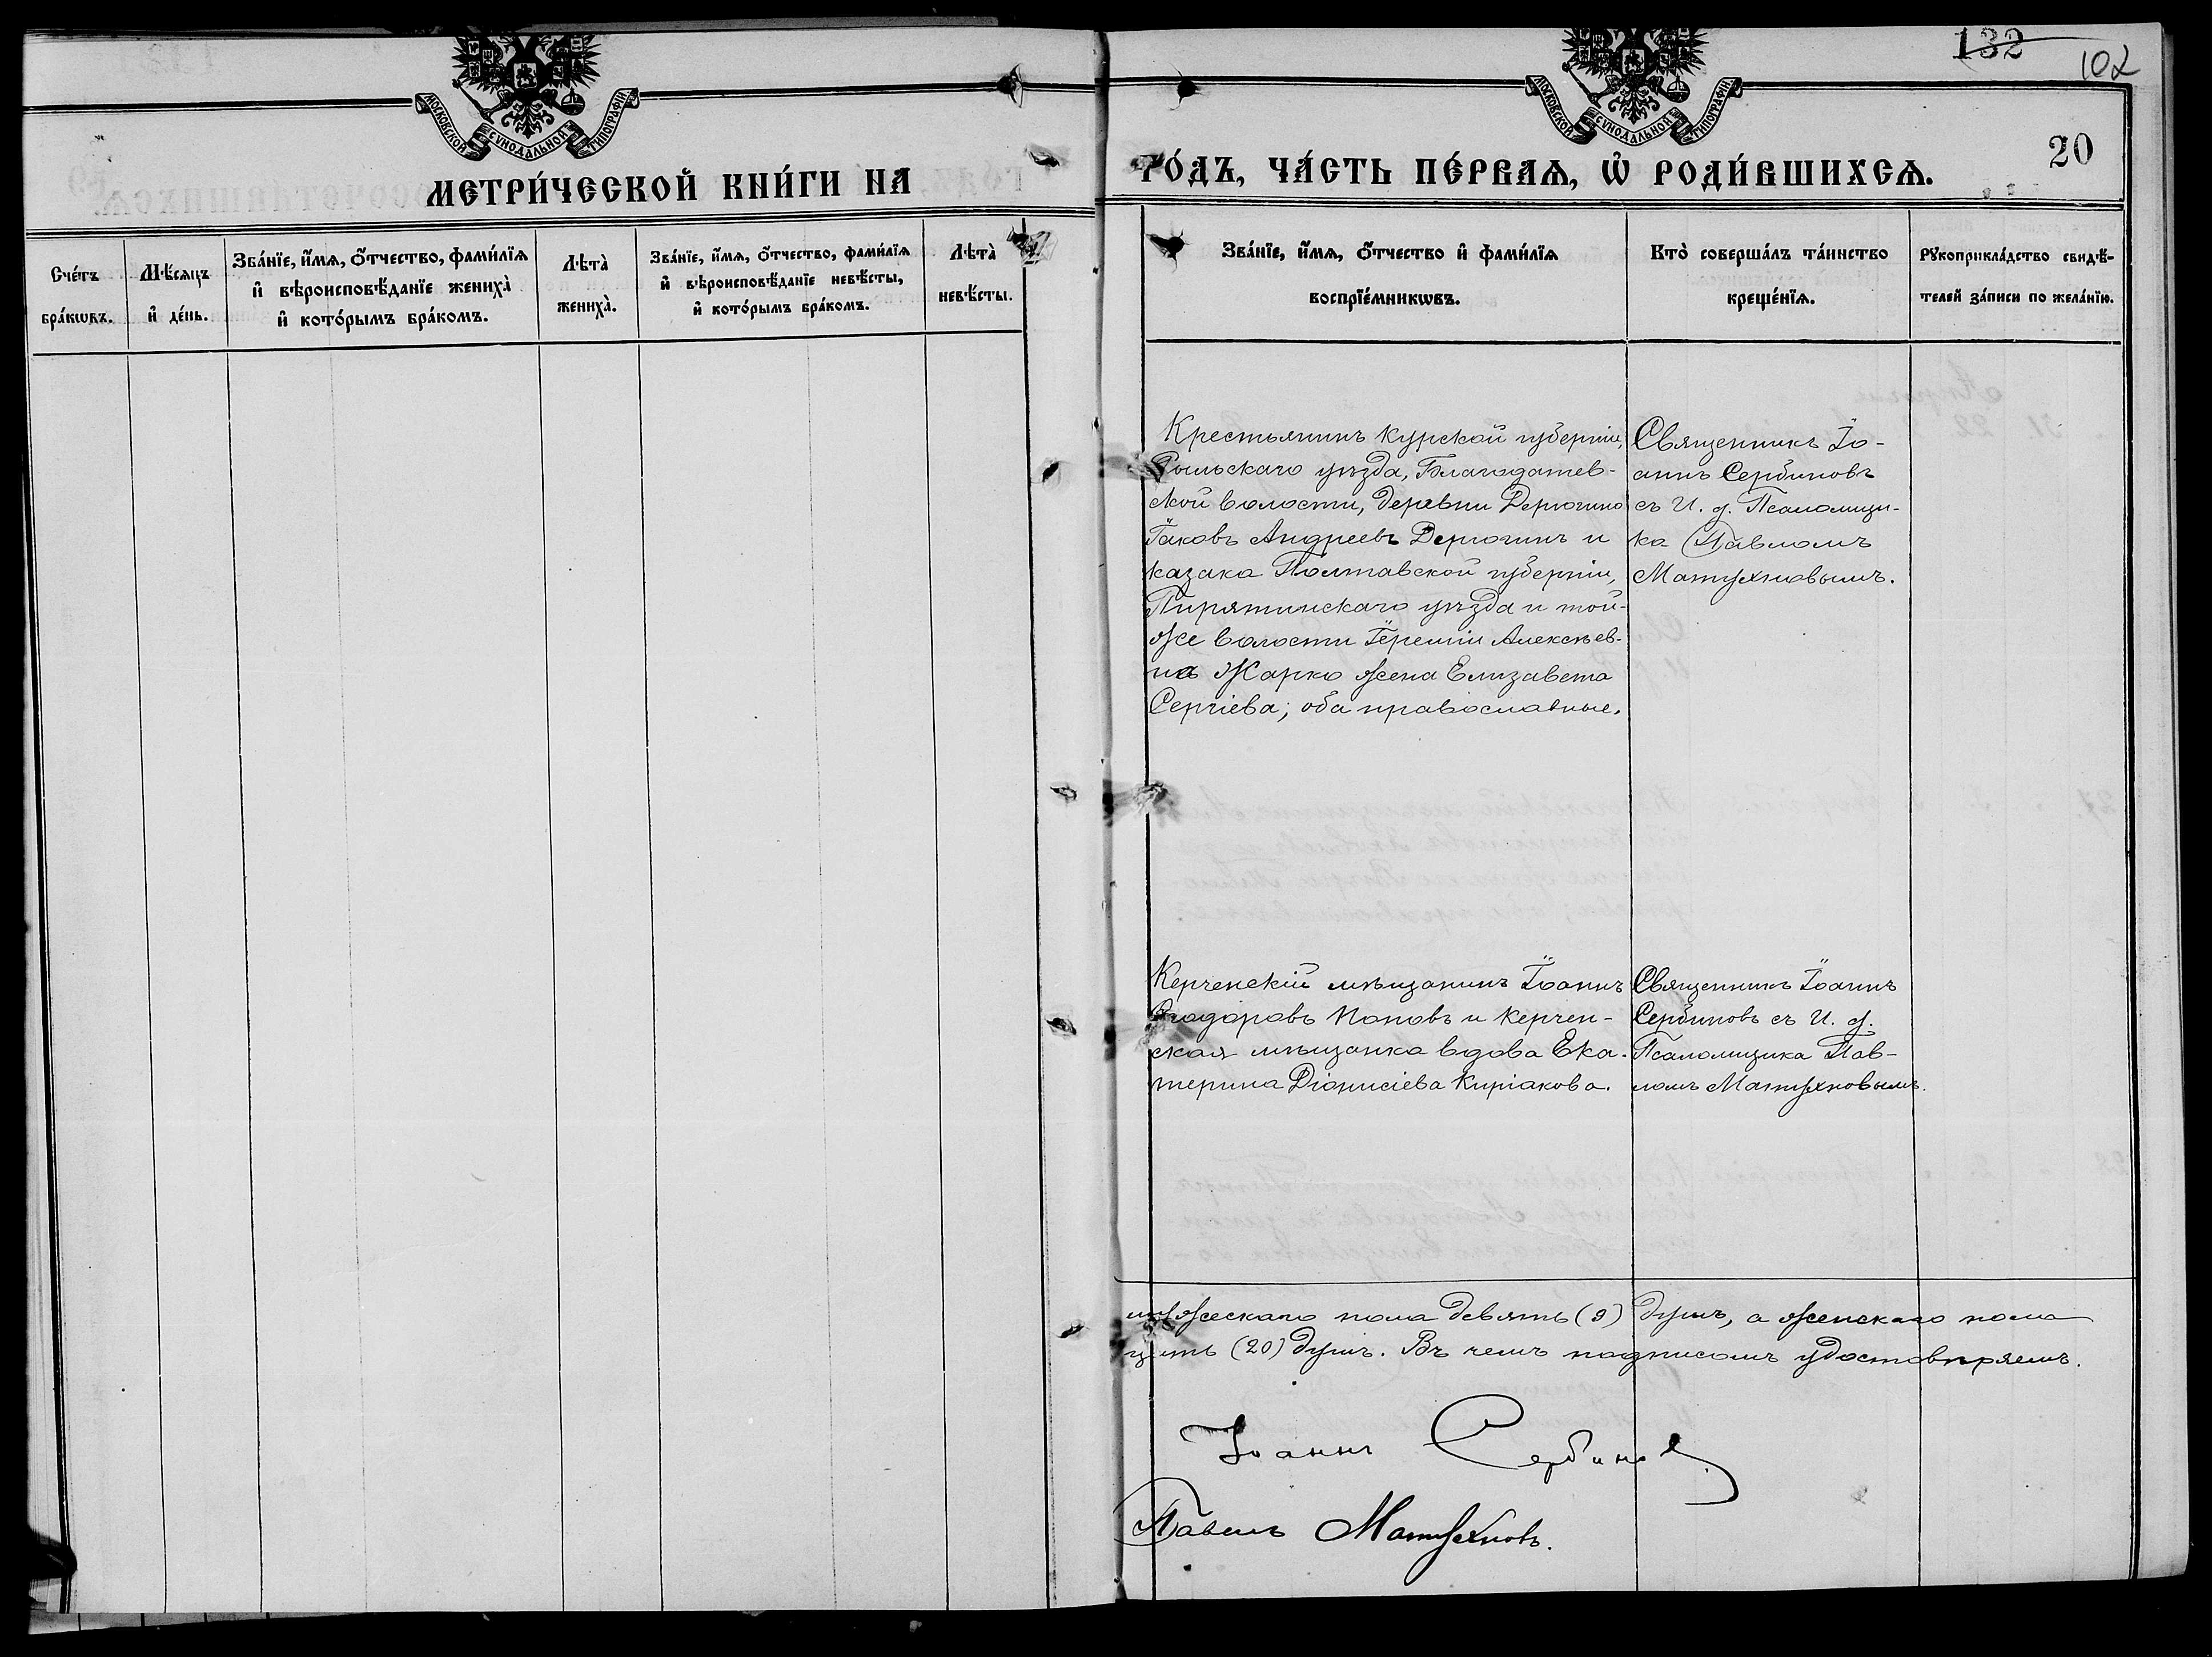 МОСКОВСКОЙ СУНОДАЛЬНОЙ ТИПОГРАФІИ
МЕТРИ́ЧЕСКОЙ КНИ́ГИ НА
Сче́тъ бра́кѡвъ.
Мѣ́сяцъ и҆ де́нь.
Зва́нїе, и҆́мѧ, ѻ҆́тчество, фами́лїѧ
и҆ вѣроисповѣ́данїе жениха̀
и҆ кото́рымъ бра́комъ.
Лѣта̀ жениха̀.
Зва́нїе, и҆́мѧ, ѻ҆́тчество, фами́лїѧ
и҆ вѣроисповѣ́данїе невѣ́сты,
и҆ кото́рымъ бра́комъ.
Лѣта̀ невѣ́сты.
МОСКОВСКОЙ СУНОДАЛЬНОЙ ТИПОГРАФІИ
132
102
20
ГО́ДЪ, ЧА́СТЬ ПЕ́РВАѦ, Ѡ҆ РОДИ́ВШИХСѦ.
Зва́нїе, и҆́мѧ, ѻ҆́тчество и҆ фами́лїѧ
воспрїе́мникѡвъ.
Кто̀ соверша́лъ та́инство
креще́нїѧ.
Рꙋкоприкла́дство свидѣ́-
телей за́писи по жела́нїю.
Крестьянинъ Курской губерніи,
Рыльскаго уѣзда, Благодатев-
ской волости, деревни Дерюгино
Іаковъ Андреевъ Дерюгинъ и
казака Полтавской губерніи,
Пирятинскаго уѣзда и той-
же волости Іереміи Алексѣев-
на Жарко жена Елизавета
Сергіева; оба православные.
Священникъ Іо-
аннъ Сербиновъ
съ И. д. Псаломщи-
ка Павломъ
Матухновымъ.
Керченскій мѣщанинъ Іоаннъ
Ѳеодоровъ Поповъ и керчен-
ская мѣщанка вдова Ека-
терина Діонисіева Киріакова.
Священникъ Іоаннъ
Сербиновъ съ И. д.
Псаломщика Пав-
ломъ Матухновымъ.
мужескаго пола девять (9) душъ, а женскаго пола
цать (20) душъ. Въ чемъ подписомъ удостовѣряемъ.
Іоаннъ Сербиновъ
Павелъ Матухновъ.